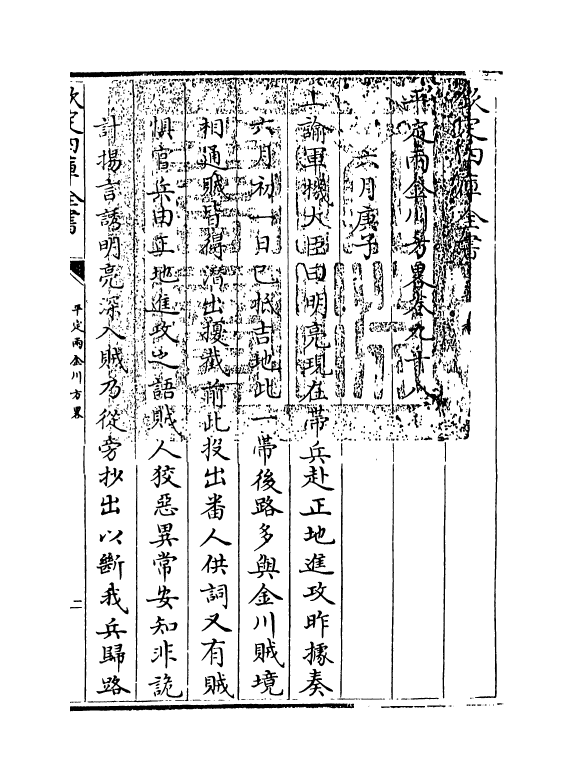 欽定四庫全書
平定兩金川方畧卷九十八
六月庚子
上諭軍機大臣曰明亮現在帶兵赴正地進攻昨據奏
六月初一日已抵吉地此一帶後路多與金川賊境
相通賊皆得潛出擾截前此投出番人供詞又有賊
懼官兵由正地進攻之語賊人狡惡異常安知非詭
計揚言誘明亮深入賊乃從旁抄出以斷我兵歸路
欽定四庫全書
平定兩金川方畧
二